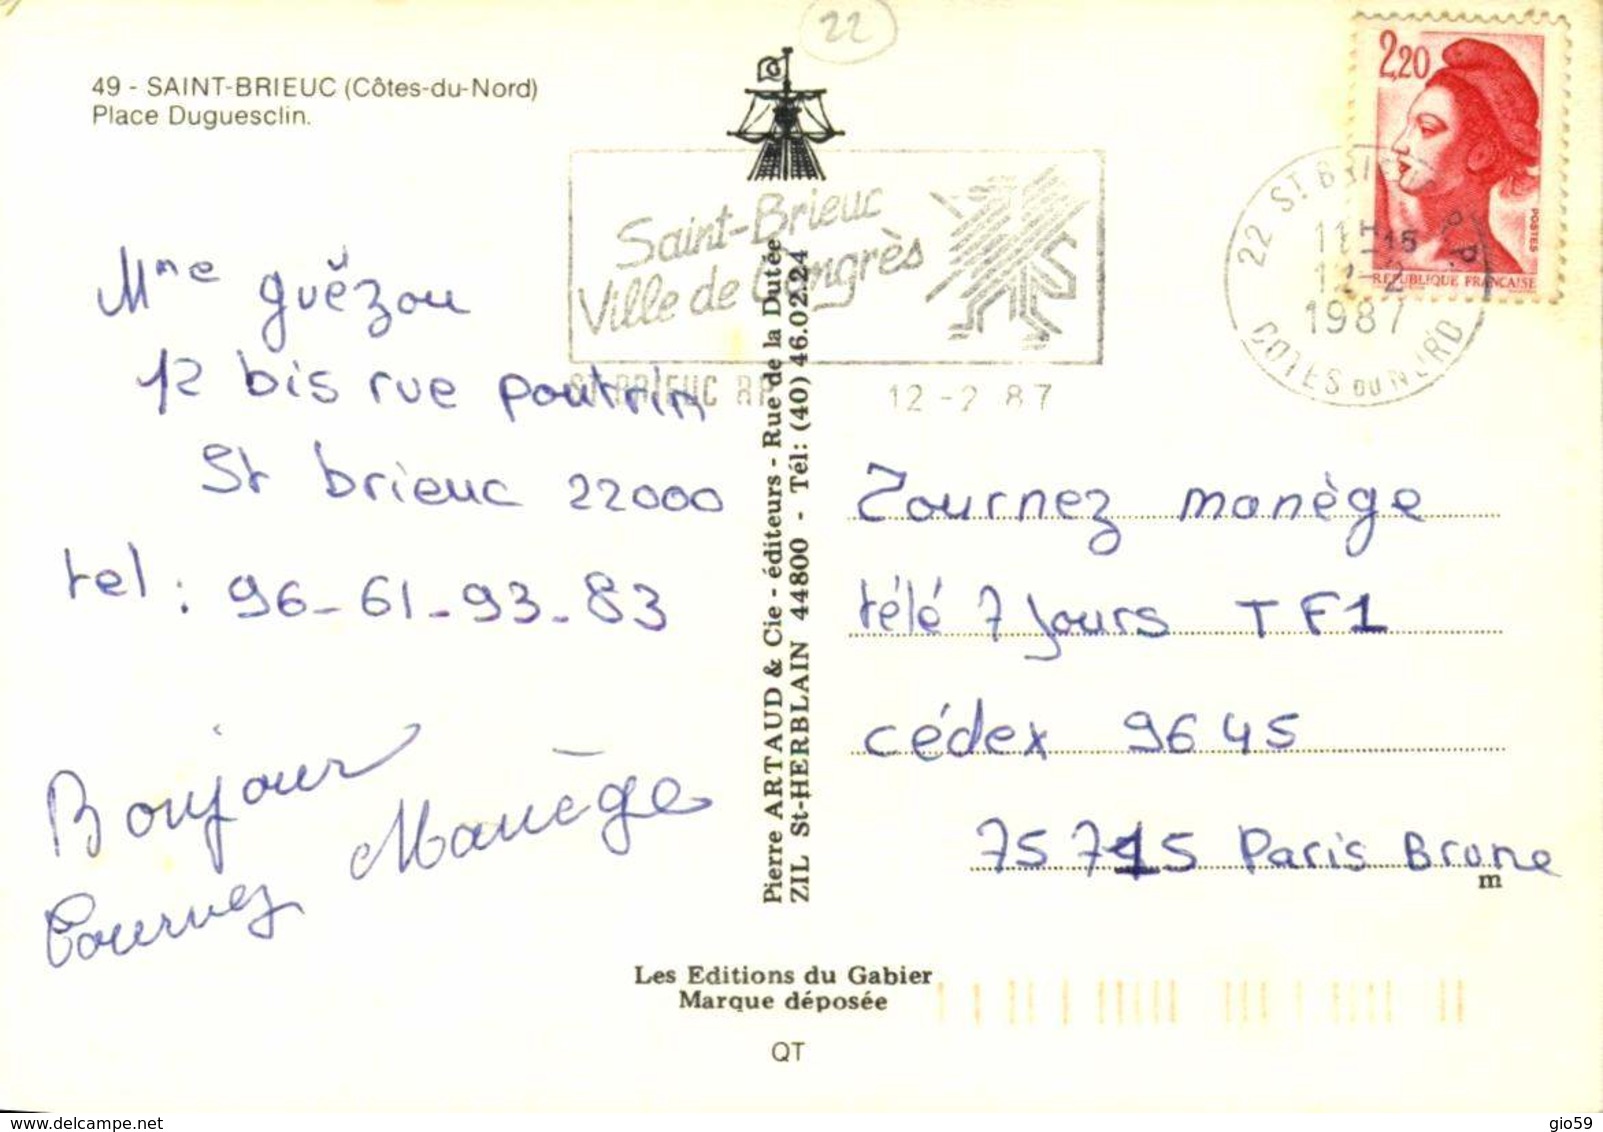 22
49 - SAINT-BRIEUC (Côtes-du-Nord)
Place Duguesclin.
2,20
POSTES
REPUBLIQUE FRANCAISE
Saint-Brieuc
Ville de Congrès
ST BRIEUC RP 12-2 87
22 ST BRIEUC R.P.
11H15
12-2
1987
COTES DU NORD
Mme guězou
12 bis rue poutrin
St brieuc 22000
tel : 96-61-93-83
Bonjour
Tournez Manège
Pierre ARTAUD & Cie - éditeurs - Rue de la Dutée
ZIL St-HERBLAIN 44800 - Tél: (40) 46.02.24
Tournez manège
télé 7 jours TF1
cédex 9645
75715 Paris Brune
m
Les Editions du Gabier
Marque déposée
QT
www.delcampe.net
gio59